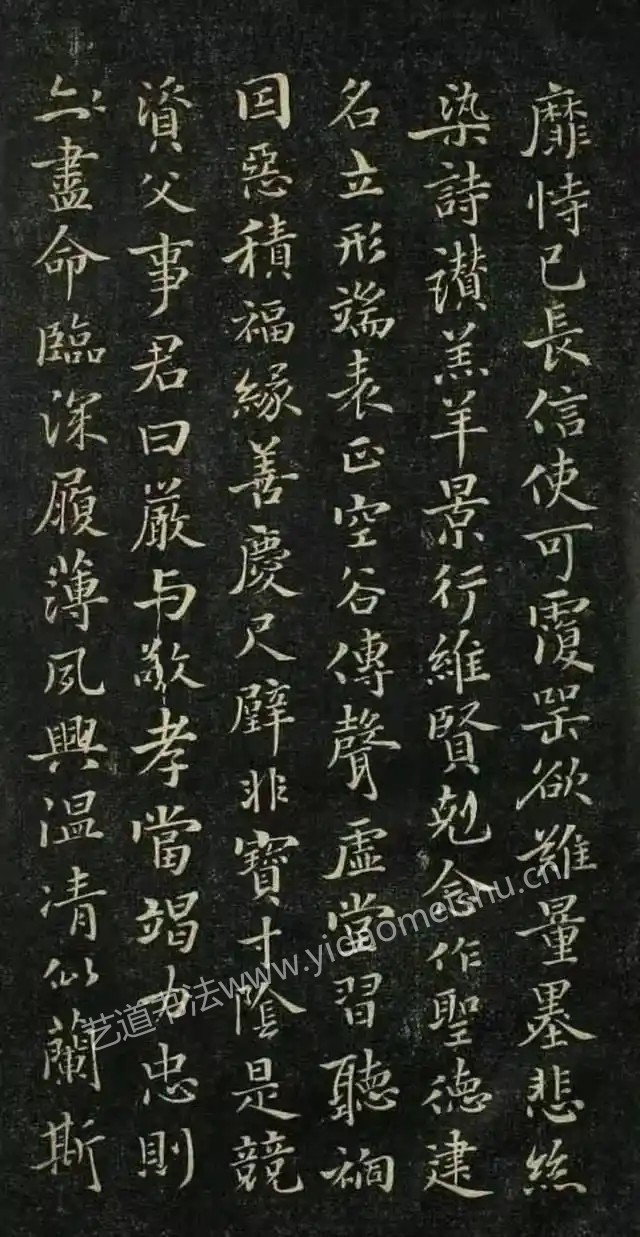 靡恃已長信使可覆器欲難量墨悲絲
染詩讃羔羊景行維賢剋念作聖德建
名立形端表正空谷傳聲虛堂習聽禍
因惡積福緣善慶尺璧非寶寸陰是競
資父事君曰嚴与敬孝當竭力忠則
盡命臨深履薄夙興温凊似蘭斯
艺道书法www.yidaomeishu.cn